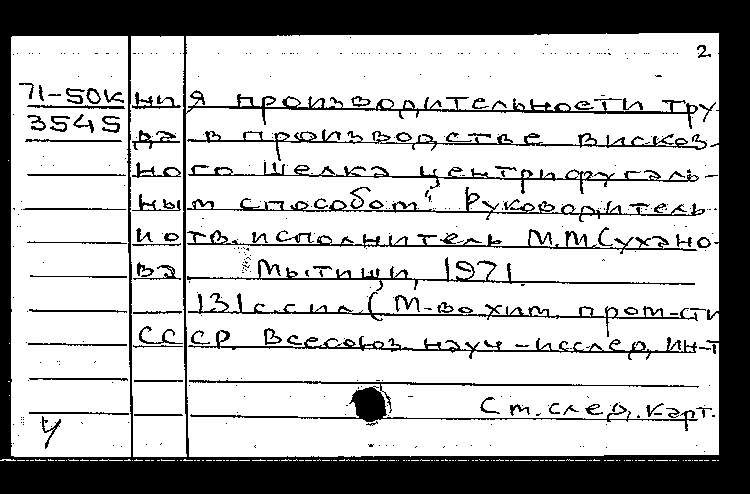 2.
71-50К ния производительности тру-
3545 да в производстве вискоз-
ного шелка центрифугаль-
ным способом". Руководитель
и отв. исполнитель М.М.Сухано-
ва. Мытищи, 1971.
131 с. с ил. (М-во хим. пром-сти
СССР. Всесоюз. науч.-исслед. ин-т
См. след. карт.